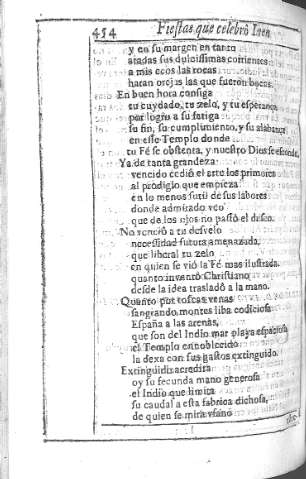 454 Fiestas que celebrò Iaen
y en su margen en tanto
atadas sus dulcissimas corrientes
a mis ecos las rocas
haran orejas las que fueron bocas.
En buen hora consiga
tu cuydado, tu zelo, y tu esperança
por logro a su fatiga
su fin, su cumplimiento, y su alabança
en este Templo donde
tu Fé se obstenta, y nuestro Dios se esconde.
Ya de tanta grandeza
vencido cediô el arte los primores
al prodigio que empieza
en lo menos sutil de sus labores
donde admirado veo
que de los ojos no passò el deseo.
No venciô a tu desvelo
necessidad futura amenazada,
que liberal tu zelo
en quien se viò la Fé mas ilustrada.
quanto inventò Christiano
desde la idea trasladò a la mano.
Quanto por toscas venas
sangrando montes liba codiciosa
España a las arenas,
que son del Indio mar playa espaciosa
el Templo ennoblecido
la dexa con sus gastos extinguido.
Extinguida acredita
oy su fecunda mano generosa
el Indio que limita
su caudal a esta fabrica dichosa,
de quien se mira vfano